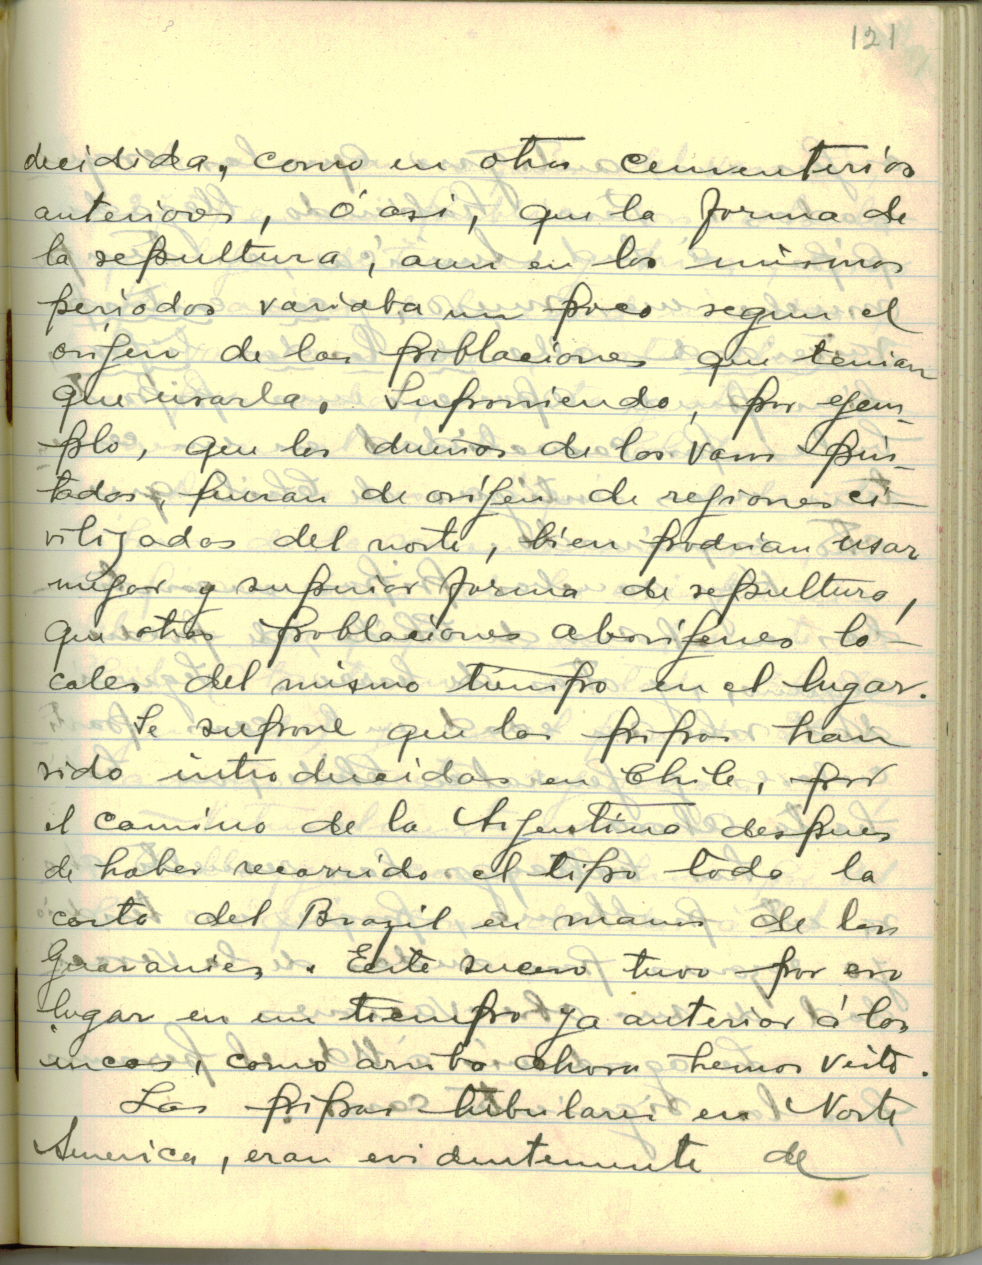 121
decidida, como en otros cementerios
anteriores, ó así, que la forma de
la sepultura, aun en los mismos
periodos variaba un poco segun el
orígen de las poblaciones que tenian
que usarla. Suponiendo, por ejem-
plo, que los dueños de los vasos pin-
tados, fueran de orígen de regiones ci-
vilizadas del norte, bien podrian usar
mejor y superior forma de sepultura,
que otras poblaciones aborígenes lo-
cales del mismo tiempo en el lugar.
Se supone que las pipas han
sido introducidas en Chile, por
el camino de la Argentina despues
de haber recorrido el tipo toda la
costa del Brazil en manos de los
Guaranies. Este suceso tuvo por eso
lugar en un tiempo ya anterior á los
incas, como arriba ahora hemos visto.
Las pipas tubulares en Norte
America, eran evidentemente de